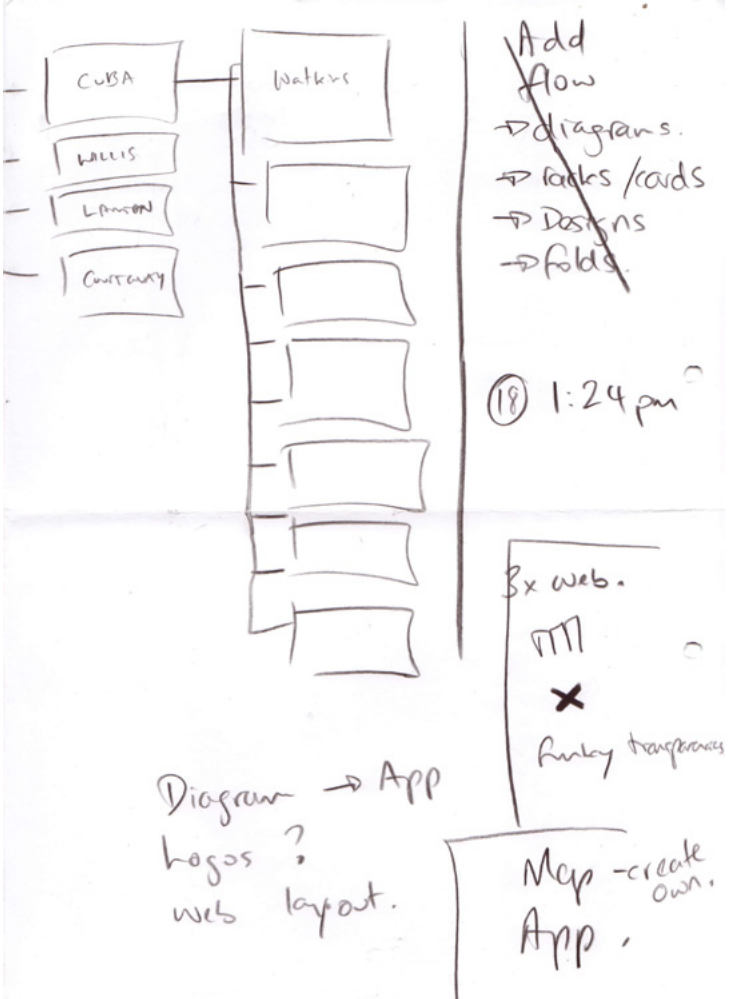 CUBA
WILLIS
Watkins
Add
flow
→ diagrams.
→ racks/cards
→ Designs
→ folds.
18 1:24pm
3x web.
X
funky transparencies
Diagram → App
Logos ?
web layout.
Map - create
own.
App.